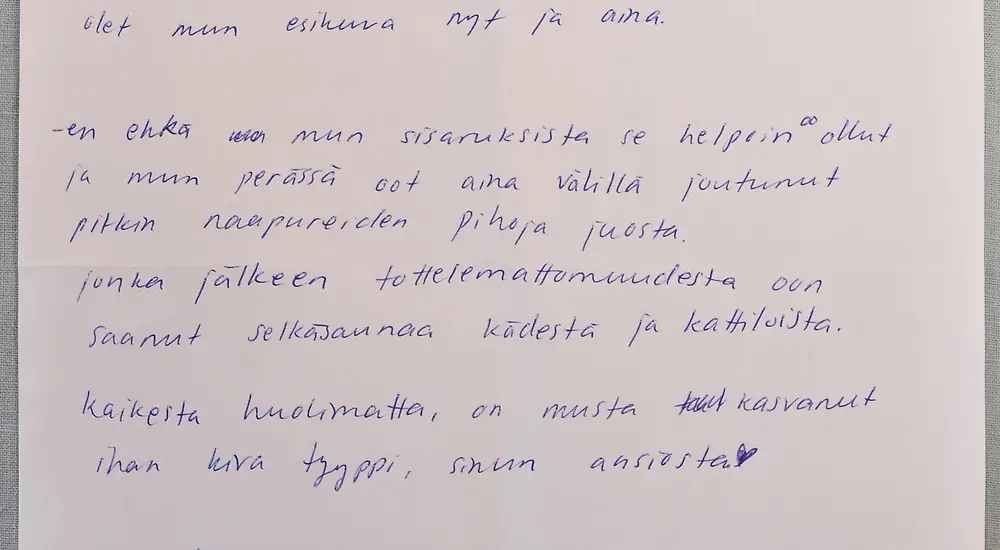 olet mun esikuva nyt ja aina.
-en ehkä mun sisaruksista se helpoin oo ollut
ja mun perässä oot aina välillä joutunut
pitkin naapureiden pihoja juosta.
jonka jälkeen tottelemattomuudesta oon
saanut selkäsaunaa kädestä ja kattiloista.
Kaikesta huolimatta, on musta kasvanut
ihan kiva tyyppi, sinun ansiosta